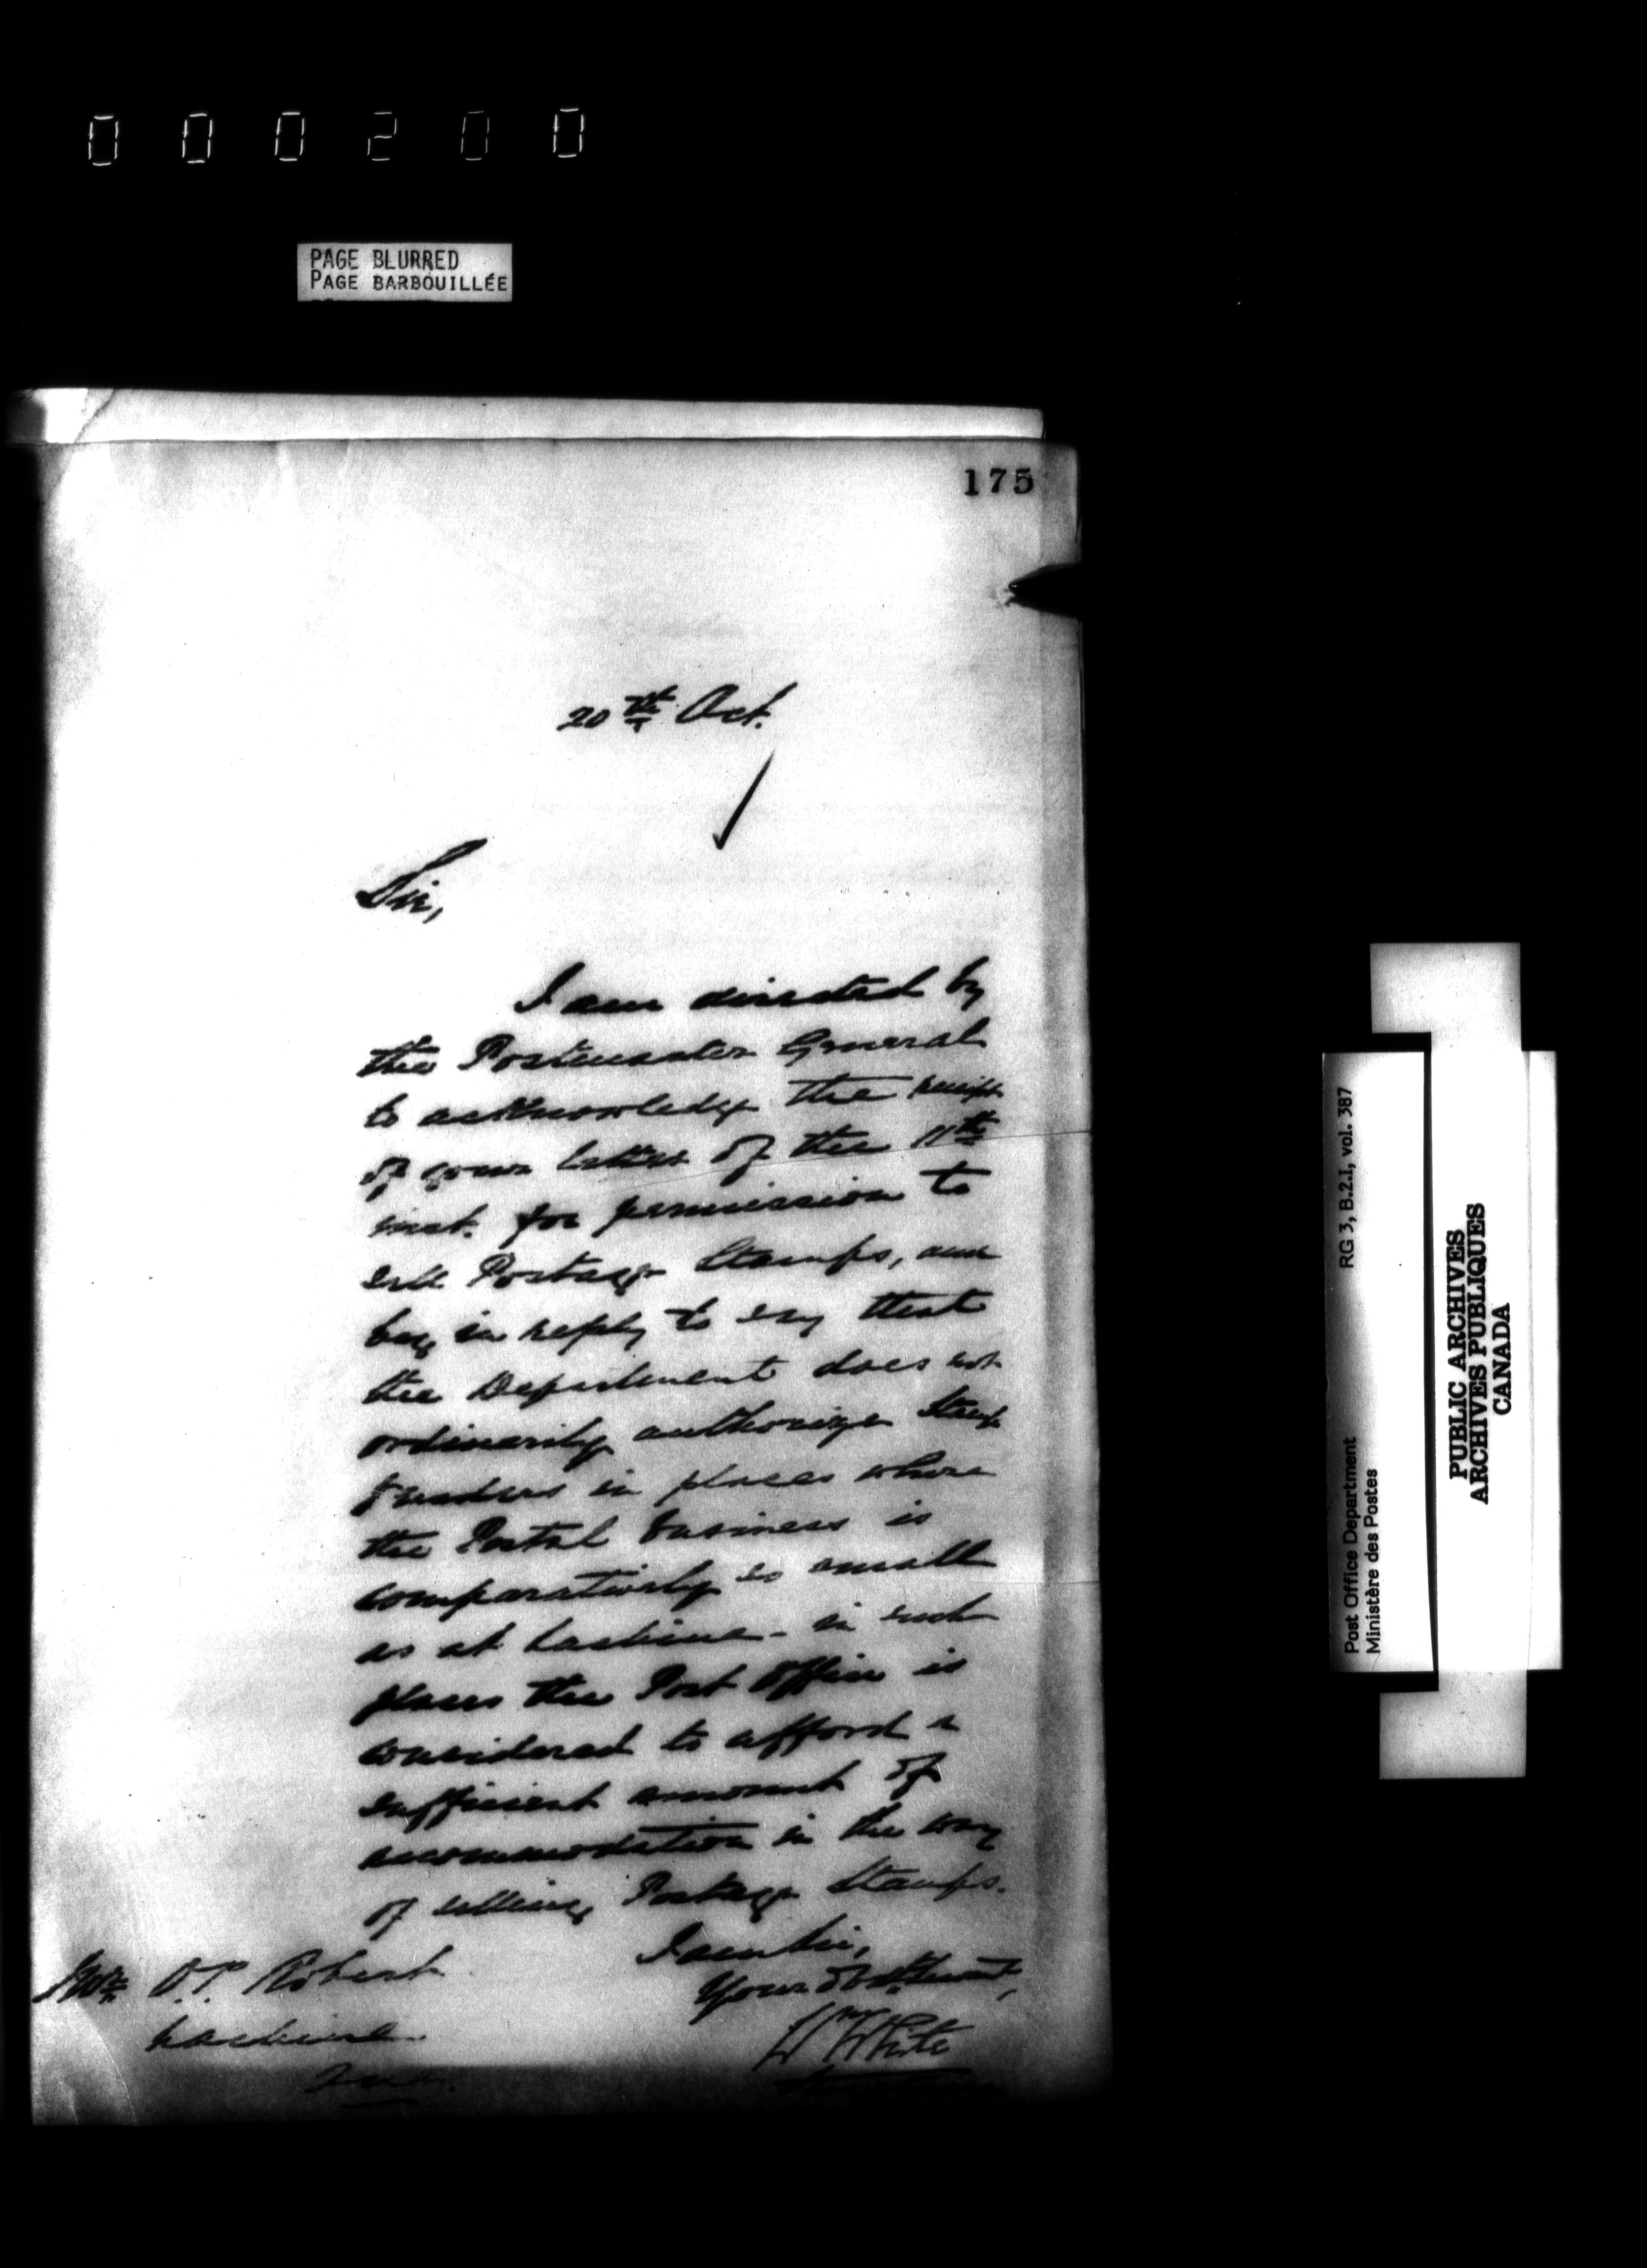 000200
PAGE BLURRED
PAGE BARBOUILLÉE
175
20th Oct.
Sir,
I am directed by
the Postmaster General
to acknowledge the receipt
of your letter of the 11th
inst. for permission to
sell Postage Stamps, and
beg in reply to say that
the Department does not
ordinarily authorize Stamp
Vendors in places where
the Postal business is
comparatively so small
as at Lachine - in such
places the Post Office is
considered to afford a
sufficient amount of
accommodation in the way
of selling Postage Stamps.
I am Sir,
Your Obdt. Servant,
Wm White
Secretary
Mr. O.P. Robert
Lachine
Que.
Post Office Department RG 3, B.2.I, vol. 387
Ministère des Postes
PUBLIC ARCHIVES
ARCHIVES PUBLIQUES
CANADA